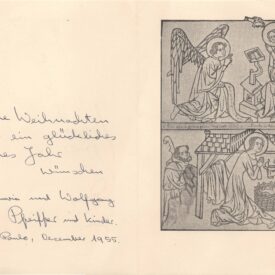 Weihnachten
ein glückliches
Jahr
wünschen
und Wolfgang
Pfeiffer und Kinder.
Paulo, Dezember 1955.